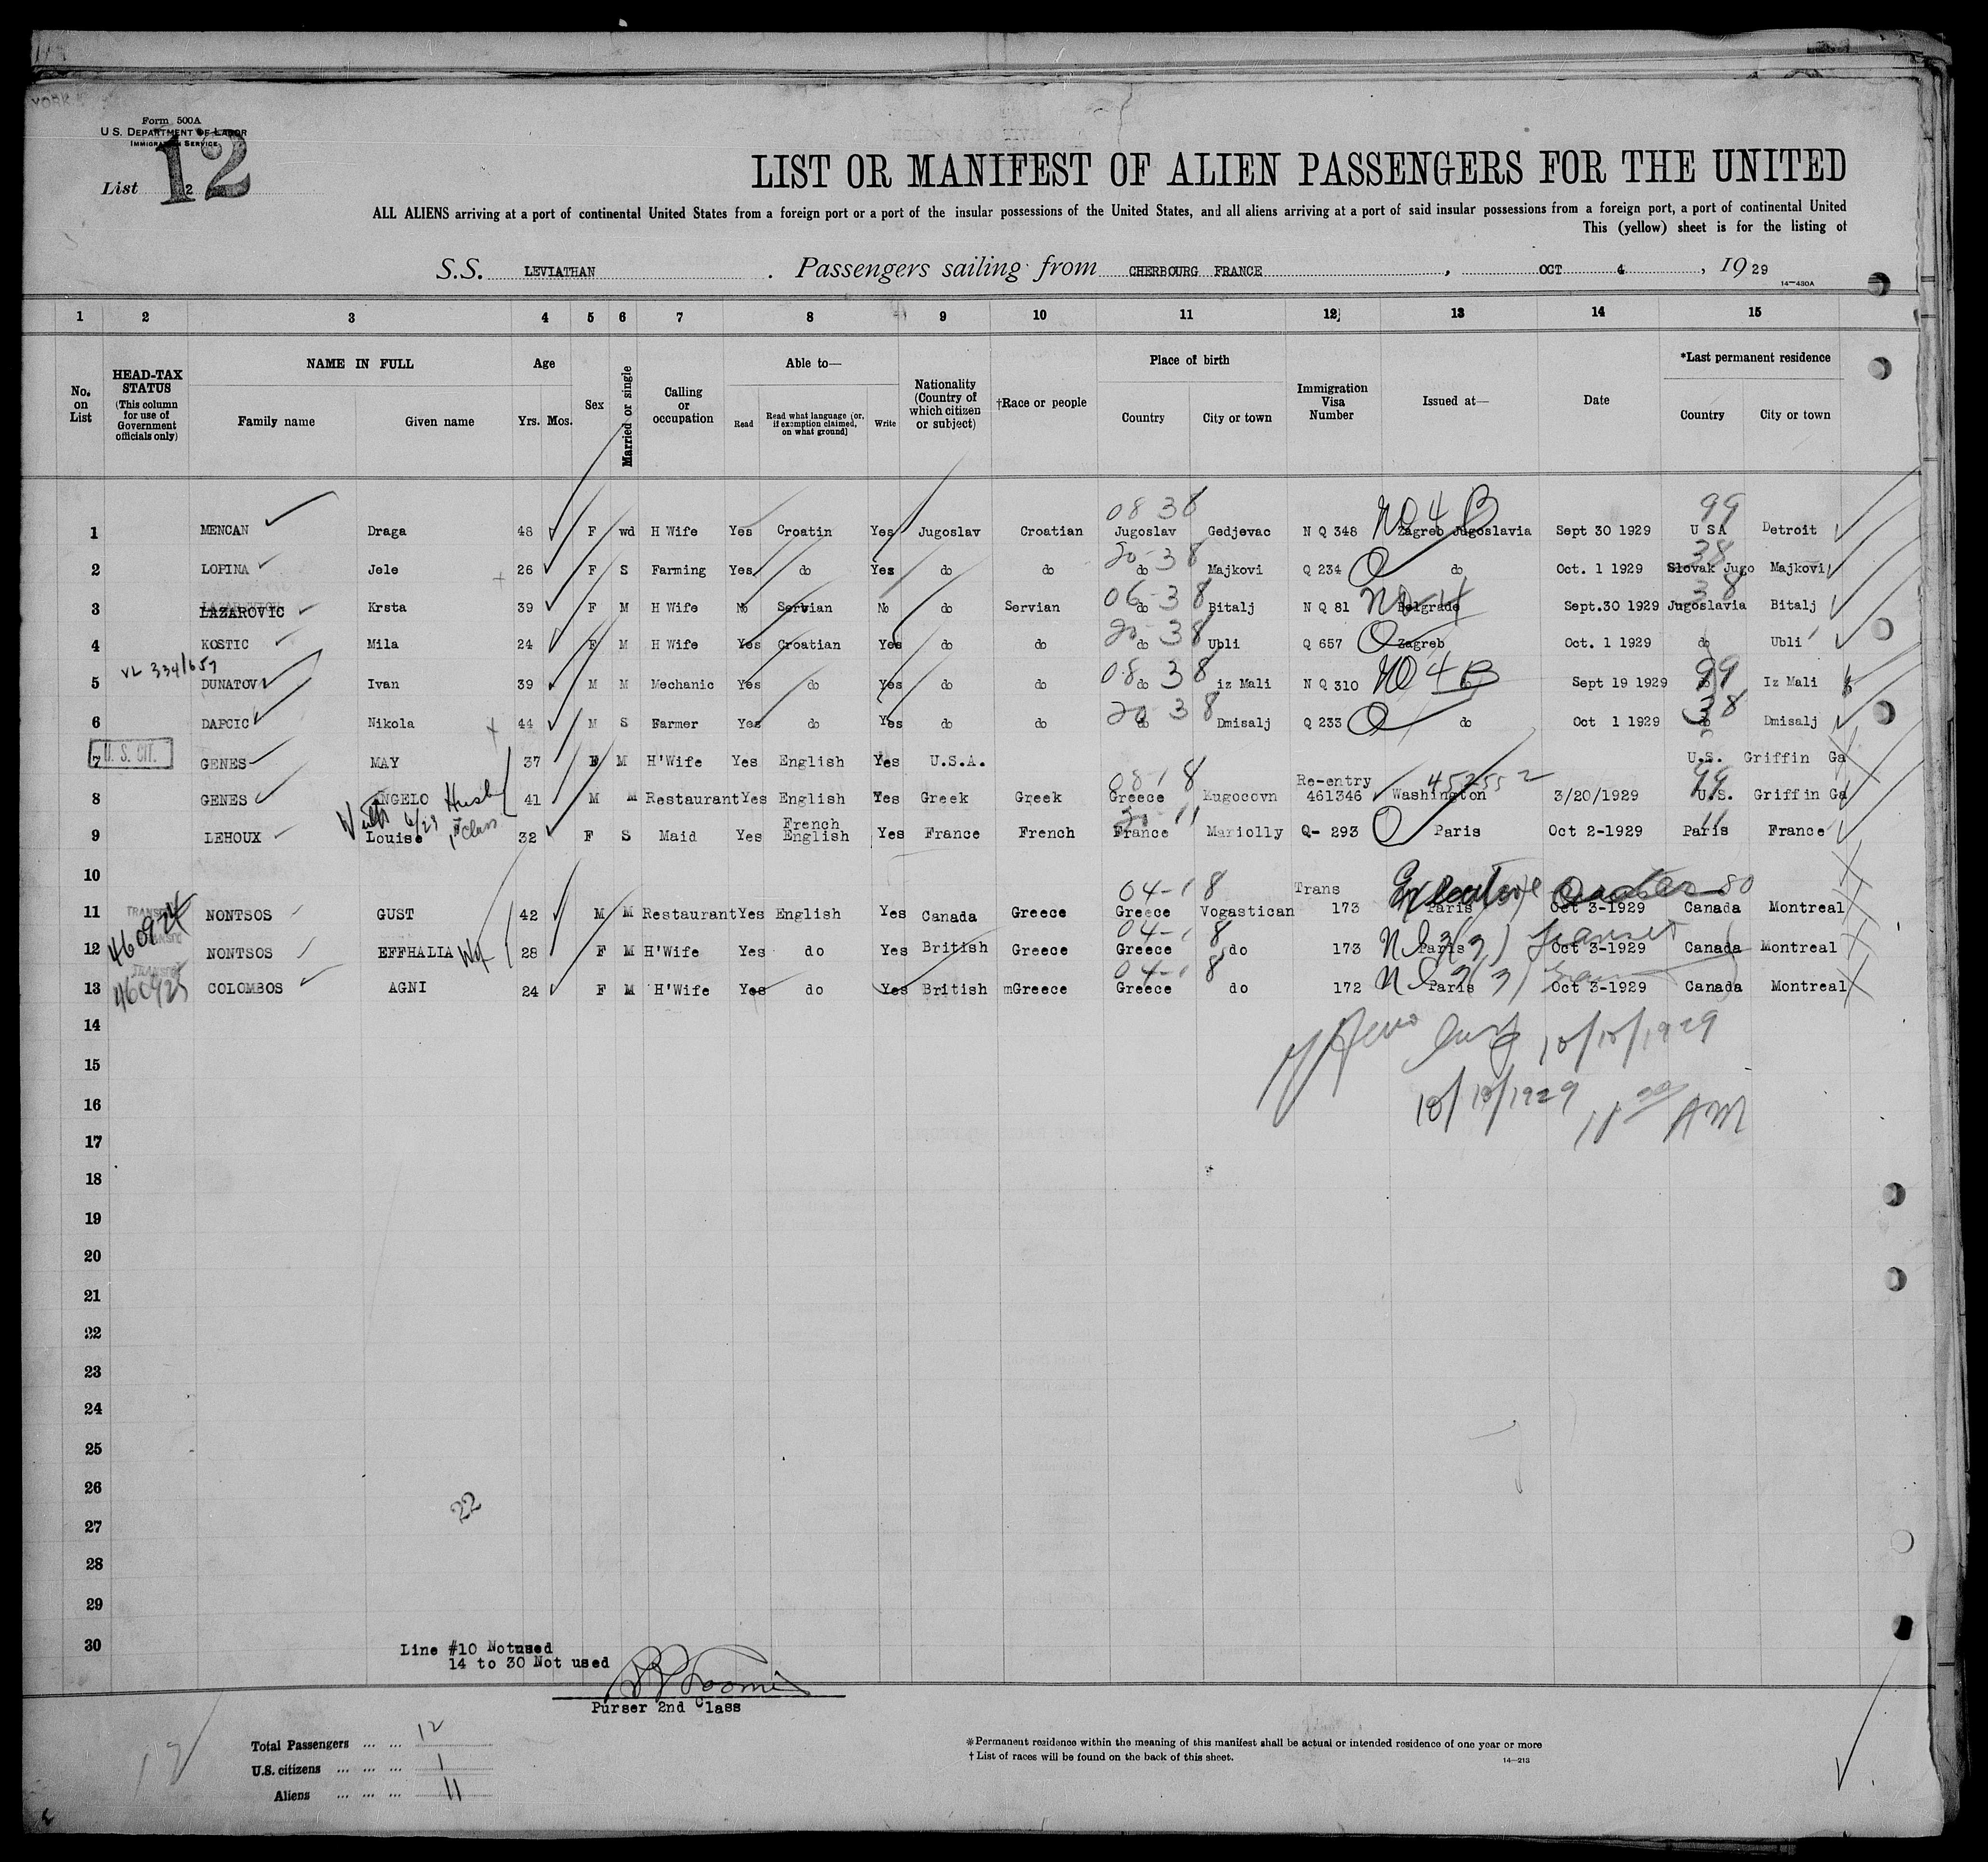 YORK
Form 500A
U.S. DEPARTMENT OF LABOR
IMMIGRATION SERVICE
List 2
12
LIST OR MANIFEST OF ALIEN PASSENGERS FOR THE UNITED
ALL ALIENS arriving at a port of continental United States from a foreign port or a port of the insular possessions of the United States, and all aliens arriving at a port of said insular possessions from a foreign port, a port of continental United
This (yellow) sheet is for the listing of
S.S. LEVIATHAN . Passengers sailing from CHERBOURG FRANCE , OCT 4 , 1929
14—430A
1 2 3 4 5 6 7 8 9 10 11 12 13 14 15
No. on List
HEAD-TAX STATUS (This column for use of Government officials only)
NAME IN FULL Family name Given name
Age Yrs. Mos.
Sex
Married or single
Calling or occupation
Able to— Read Read what language (or, if exemption claimed, on what ground) Write
Nationality (Country of which citizen or subject)
†Race or people
Place of birth Country City or town
Immigration Visa Number
Issued at—
Date
*Last permanent residence Country City or town
08 38 NO 4 B 99
1 MENCAN Draga 48 F wd H Wife Yes Croatin Yes Jugoslav Croatian Jugoslav Gedjevac N Q 348 Zagreb Jugoslavia Sept 30 1929 U S A Detroit
20-38 38
2 LOPINA Jele 26 F S Farming Yes do Yes do do do Majkovi Q 234 do Oct. 1 1929 Slovak Jugo Majkovi
06-38 38
3 LAZAROVIC Krsta 39 F M H Wife No Servian No do Servian do Bitalj N Q 81 Belgrade Sept.30 1929 Jugoslavia Bitalj
20 38
4 KOSTIC Mila 24 F M H Wife Yes Croatian Yes do do do Ubli Q 657 Zagreb Oct. 1 1929 do Ubli
VL 334/657
08 38 NO 4 B 99
5 DUNATOV Ivan 39 M M Mechanic Yes do Yes do do do iz Mali N Q 310 do Sept 19 1929 do Iz Mali
20 38 38
6 DAPCIC Nikola 44 M S Farmer Yes do Yes do do do Dmisalj Q 233 do Oct 1 1929 do Dmisalj
U. S. CIT.
7 GENES MAY 37 F M H'Wife Yes English Yes U.S.A. U.S. Griffin Ga
08-18 Re-entry 452552 99
8 GENES ANGELO Husb 41 M M Restaurant Yes English Yes Greek Greek Greece Kugocovn 461346 Washington 3/20/1929 U.S. Griffin Ga
With 6/23 1st Class
French
9 LEHOUX Louise 32 F S Maid Yes English Yes France French France Mariolly Q- 293 Paris Oct 2-1929 Paris France
10
TRANSIT 04-18 Trans
11 NONTSOS GUST 42 M M Restaurant Yes English Yes Canada Greece Greece Vogastican 173 Paris Oct 3-1929 Canada Montreal
460924 04-18 3(3) Transit
12 NONTSOS EFFHALIA Wf 28 F M H'Wife Yes do Yes British Greece Greece do 173 Paris Oct 3-1929 Canada Montreal
TRANSIT
460925 04-18 3(3) Transit
13 COLOMBOS AGNI 24 F M H'Wife Yes do Yes British mGreece Greece do 172 Paris Oct 3-1929 Canada Montreal
14
10/10/1929
15
16 10/10/1929 11 00 AM
17
18
19
20
21
22
23
24
25
26
22
27
28
29
30
Line #10 Notused
14 to 30 Not used
Purser 2nd Class
Total Passengers ... ... 12
U.S. citizens ... ... ... 1
Aliens ... ... ... 11
*Permanent residence within the meaning of this manifest shall be actual or intended residence of one year or more
† List of races will be found on the back of this sheet.
14—213